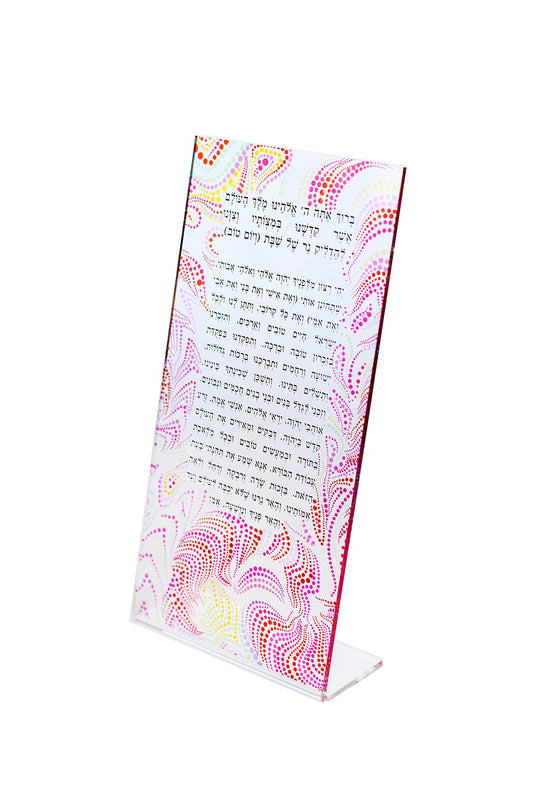 בָּרוּךְ אַתָּה ה' אֱלֹהֵינוּ מֶלֶךְ הָעוֹלָם
אֲשֶׁר קִדְּשָׁנוּ בְּמִצְוֹתָיו וְצִוָּנוּ
לְהַדְלִיק נֵר שֶׁל שַׁבָּת (וְיוֹם טוֹב)
יְהִי רָצוֹן מִלְּפָנֶיךָ יְהֹוָה אֱלֹהַי וֵאלֹהֵי אֲבוֹתַי
שֶׁתְּחוֹנֵן אוֹתִי (וְאֶת אִישִׁי וְאֶת בָּנַי וְאֶת אָבִי
וְאֶת אִמִּי) וְאֶת כָּל קְרוֹבַי. וְתִתֶּן לָנוּ וּלְכָל
יִשְׂרָאֵל חַיִּים טוֹבִים וַאֲרֻכִּים. וְתִזְכְּרֵנוּ
בְּזִכְרוֹן טוֹבָה וּבְרָכָה. וְתִפְקְדֵנוּ בִּפְקֻדַּת
יְשׁוּעָה וְרַחֲמִים וּתְבָרְכֵנוּ בְּרָכוֹת גְּדוֹלוֹת.
וְתַשְׁלִים בָּתֵּינוּ. וְתַשְׁכֵּן שְׁכִינָתְךָ בֵּינֵינוּ.
וְזַכֵּנִי לְגַדֵּל בָּנִים וּבְנֵי בָנִים חֲכָמִים וּנְבוֹנִים.
אוֹהֲבֵי יְהֹוָה. יִרְאֵי אֱלֹהִים. אַנְשֵׁי אֱמֶת. זֶרַע
קֹדֶשׁ בַּיהֹוָה. דְּבֵקִים וּמְאִירִים אֶת הָעוֹלָם
בַּתּוֹרָה וּבְמַעֲשִׂים טוֹבִים וּבְכָל מְלֶאכֶת
עֲבוֹדַת הַבּוֹרֵא. אָנָּא שְׁמַע אֶת תְּחִנָּתִי בָּעֵת
הַזֹּאת. בִּזְכוּת שָׂרָה וְרִבְקָה וְרָחֵל וְלֵאָה
אִמּוֹתֵינוּ. וְהָאֵר נֵרֵנוּ שֶׁלֹּא יִכְבֶּה לְעוֹלָם וָעֶד
וְהָאֵר פָּנֶיךָ וְנִוָּשֵׁעָה. אָמֵן